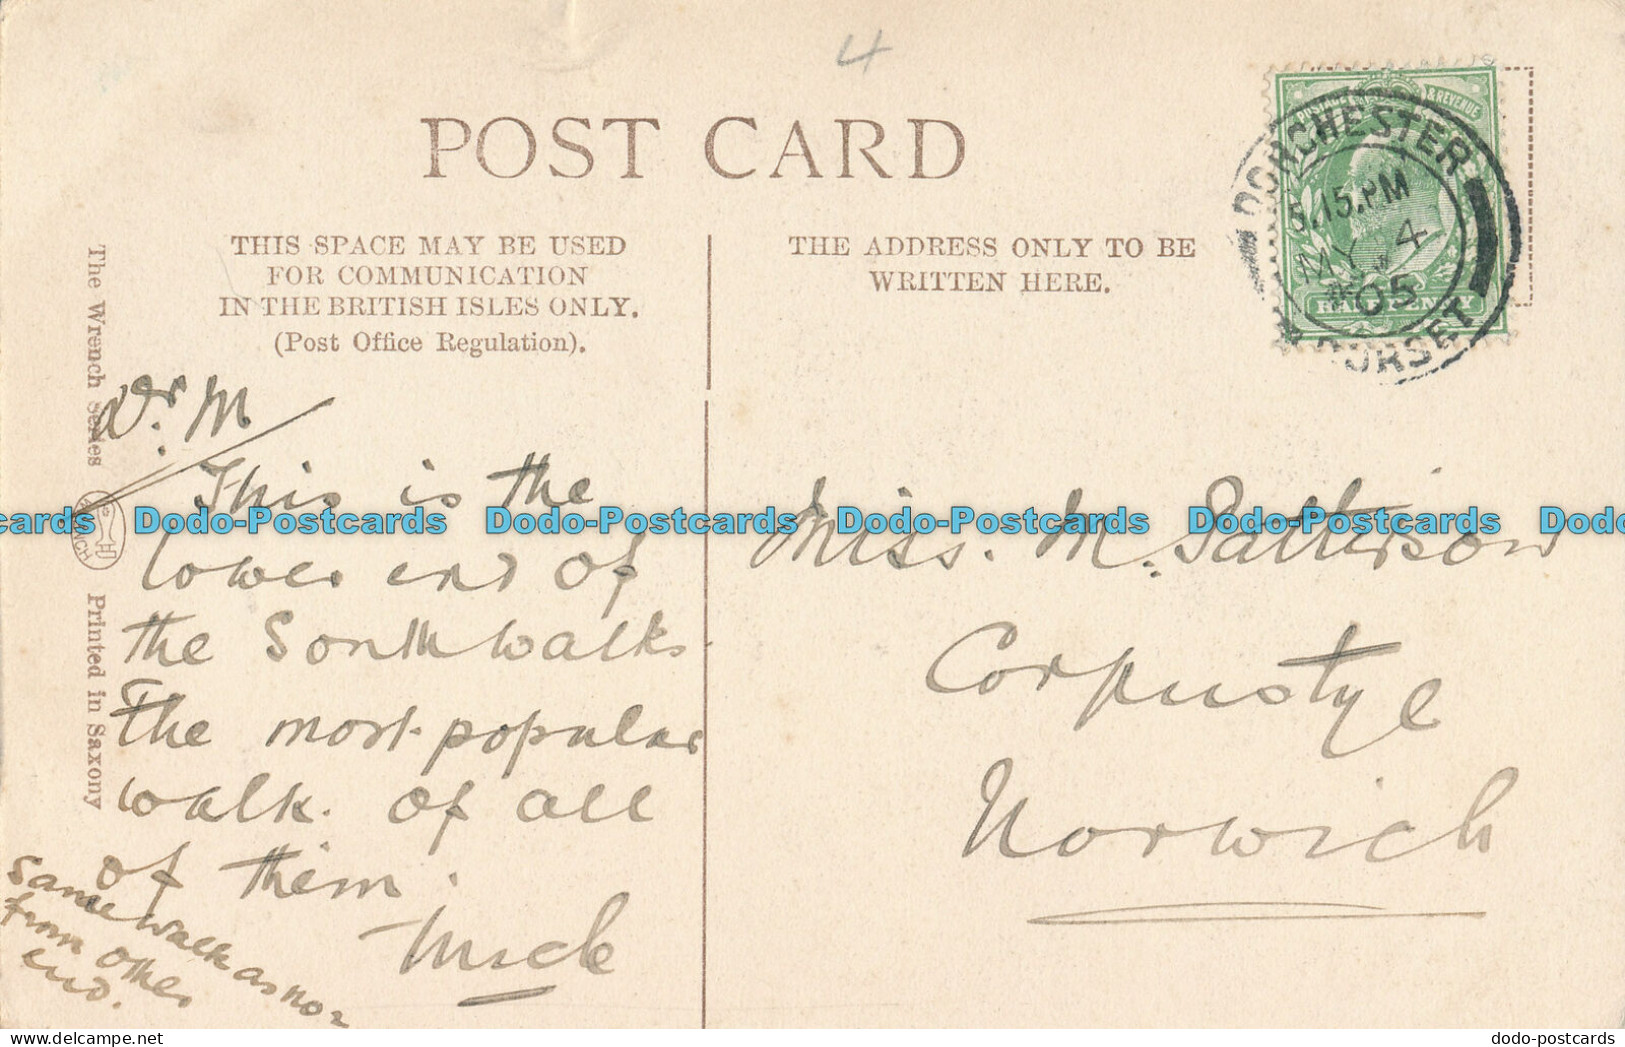 4
POST CARD
THIS SPACE MAY BE USED
FOR COMMUNICATION
IN THE BRITISH ISLES ONLY.
(Post Office Regulation).
THE ADDRESS ONLY TO BE
WRITTEN HERE.
& REVENUE
HALFPENNY
DORCHESTER
5.15.PM
MY 4
05
DORSET
The Wrench Series
Printed in Saxony
Dr. M
This is the
lower end of
the South walks
The most popular
walk. of all
of them.
same walk as no 2
from other
end.
Miss. M. Patterson
Corpustye
Norwich
Dodo-Postcards Dodo-Postcards Dodo-Postcards Dodo-Postcards
dodo-postcards
www.delcampe.net